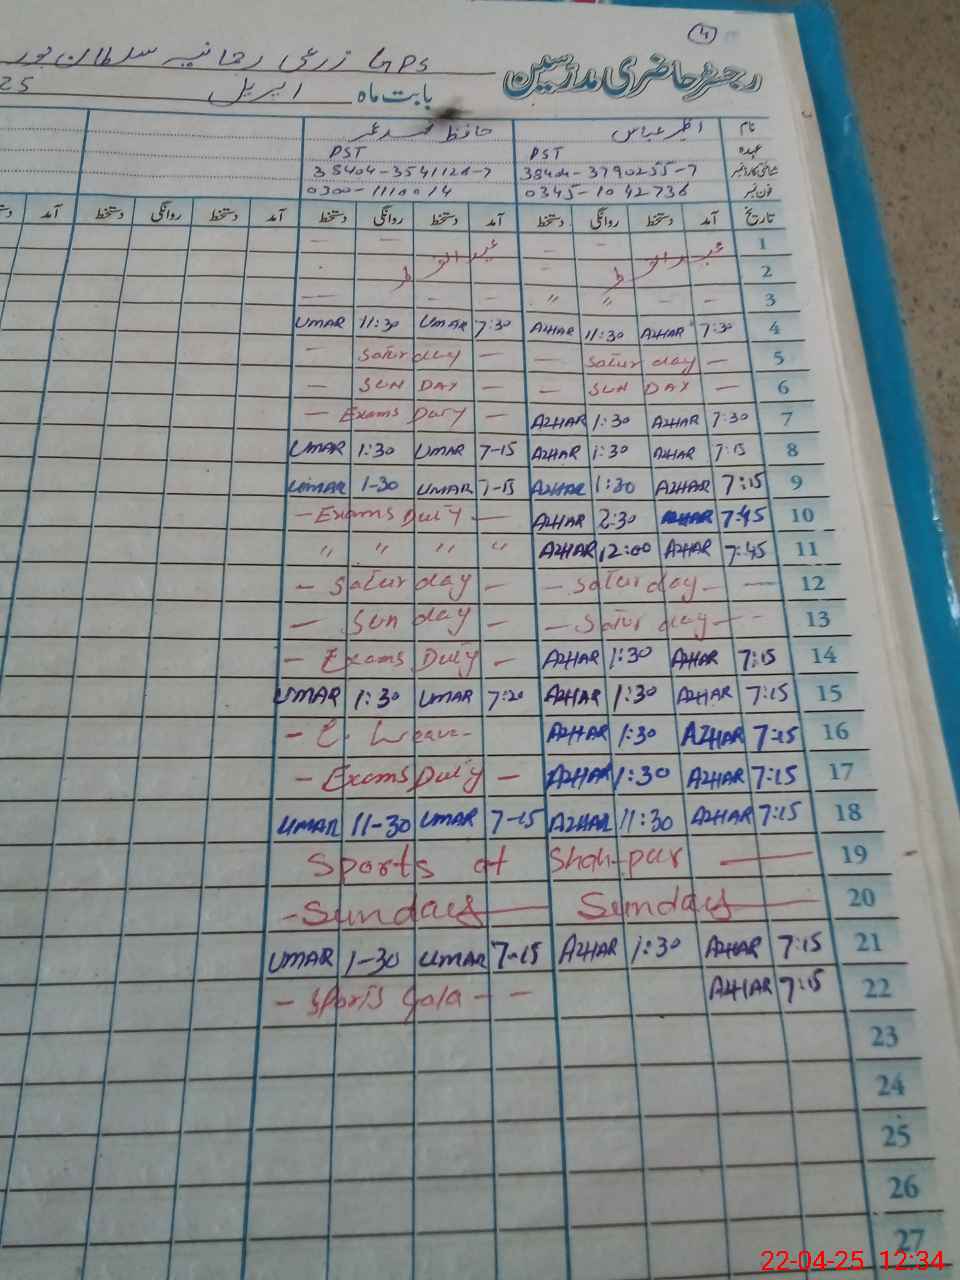 4
رجسٹر حاضری مدرسین GPS زرعی رحمانیہ سلطان پور
بابت ماہ اپریل 25
نام اظہر عباس حافظ محمد عمر
عہدہ PST PST
شناختی کارڈ نمبر 38404-3790255-7 38404-3541126-7
فون نمبر 0345-1042736 0300-1110014
تاریخ آمد دستخط روانگی دستخط آمد دستخط روانگی دستخط آمد دستخط روانگی دستخط آمد
1 عید الفطر عید الفطر
2
3 〃 〃
4 7:30 AZHAR 11:30 AZHAR 7:30 UMAR 11:30 UMAR
5 — Saturday — — Saturday —
6 — SUNDAY — — SUNDAY —
7 7:30 AZHAR 1:30 AZHAR — Exams Duty —
8 7:15 AZHAR 1:30 AZHAR 7-15 UMAR 1:30 UMAR
9 7:15 AZHAR 1:30 AZHAR 7-15 UMAR 1-30 UMAR
10 7:45 AZHAR 2:30 AZHAR — Exams Duty —
11 7:45 AZHAR 12:00 AZHAR 〃 〃 〃 〃
12 — Saturday — — Saturday —
13 — Satur day — — Sunday —
14 7:15 AZHAR 1:30 AZHAR — Exams Duty —
15 7:15 AZHAR 1:30 AZHAR 7:20 UMAR 1:30 UMAR
16 7:15 AZHAR 1:30 AZHAR — C. Leave -
17 7:15 AZHAR 1:30 AZHAR — Exams Duty —
18 7:15 AZHAR 11:30 AZHAR 7-15 UMAR 11-30 UMAR
19 Sports at Shahpur —
20 — Sunday — Sunday —
21 7:15 AZHAR 1:30 AZHAR 7-15 UMAR 1-30 UMAR
22 7:15 AZHAR — Sports Gala - —
23
24
25
26
27
22-04-25 12:34